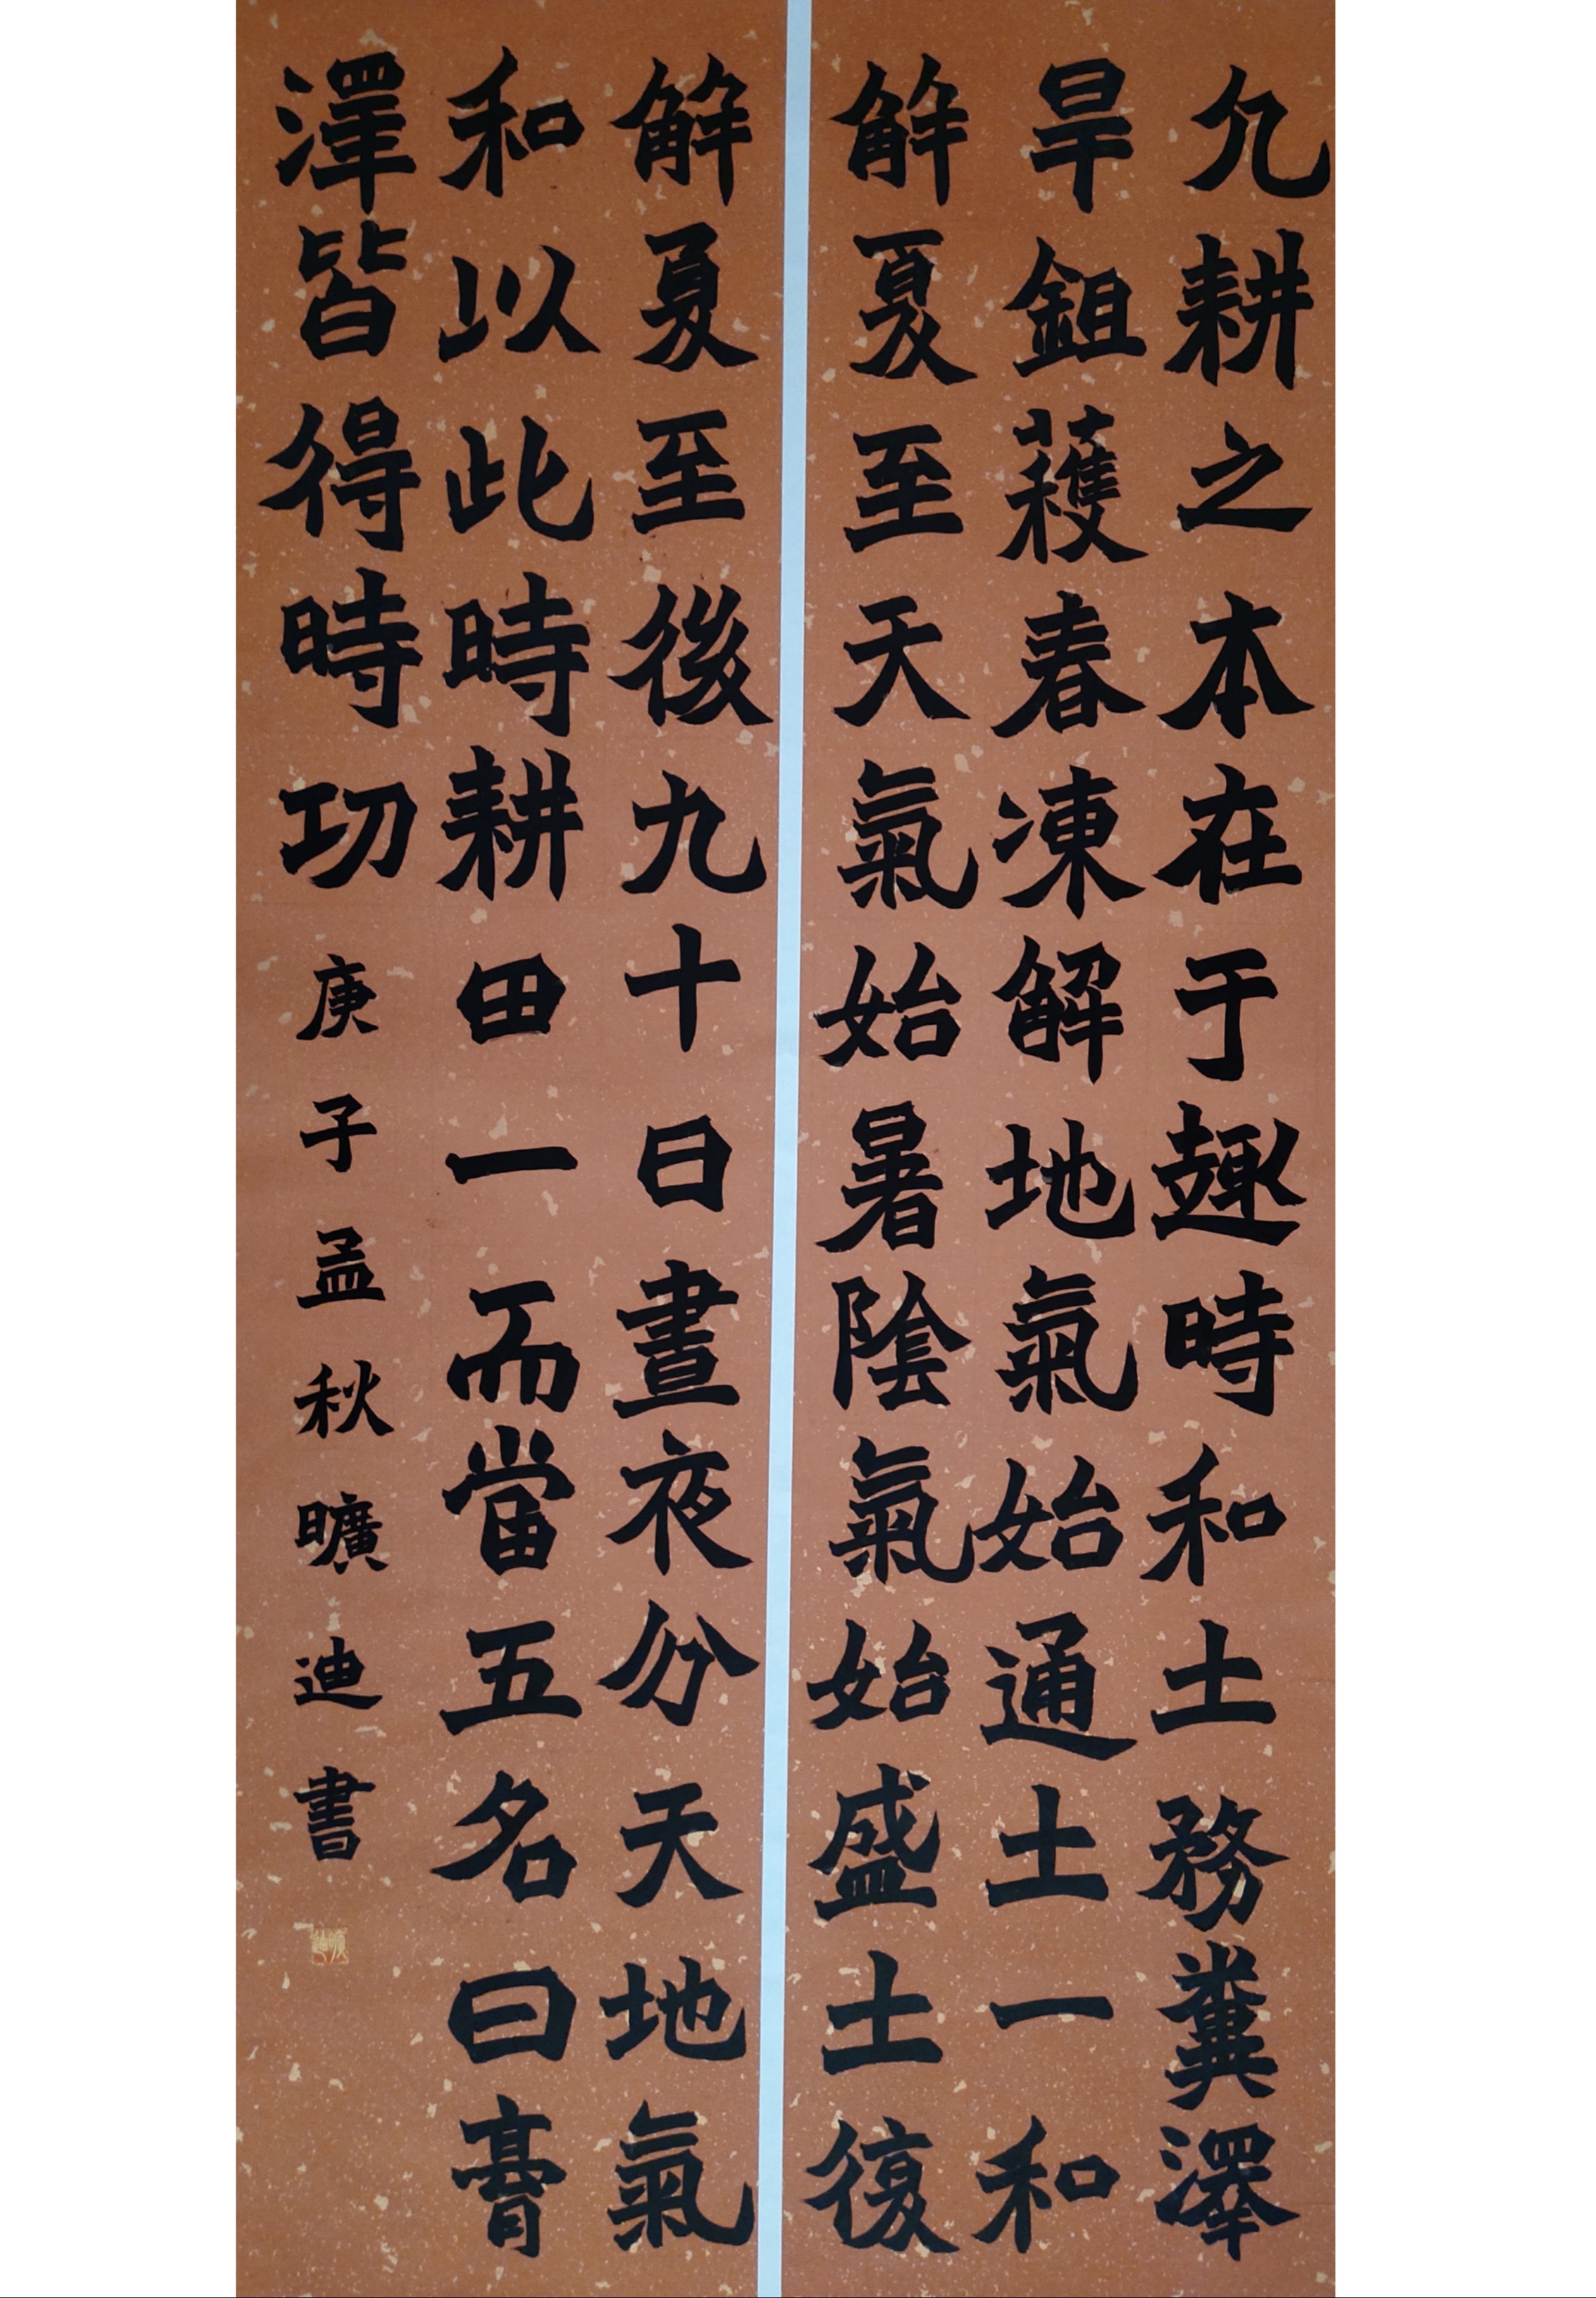 凡耕之本在于趣時和土務糞澤
旱鉏穫春凍解地氣始通土一和
解夏至天氣始暑陰氣始盛土復
解夏至後九十日晝夜分天地氣
和以此時耕田一而當五名曰膏
澤皆得時功 庚子孟秋曠迪書